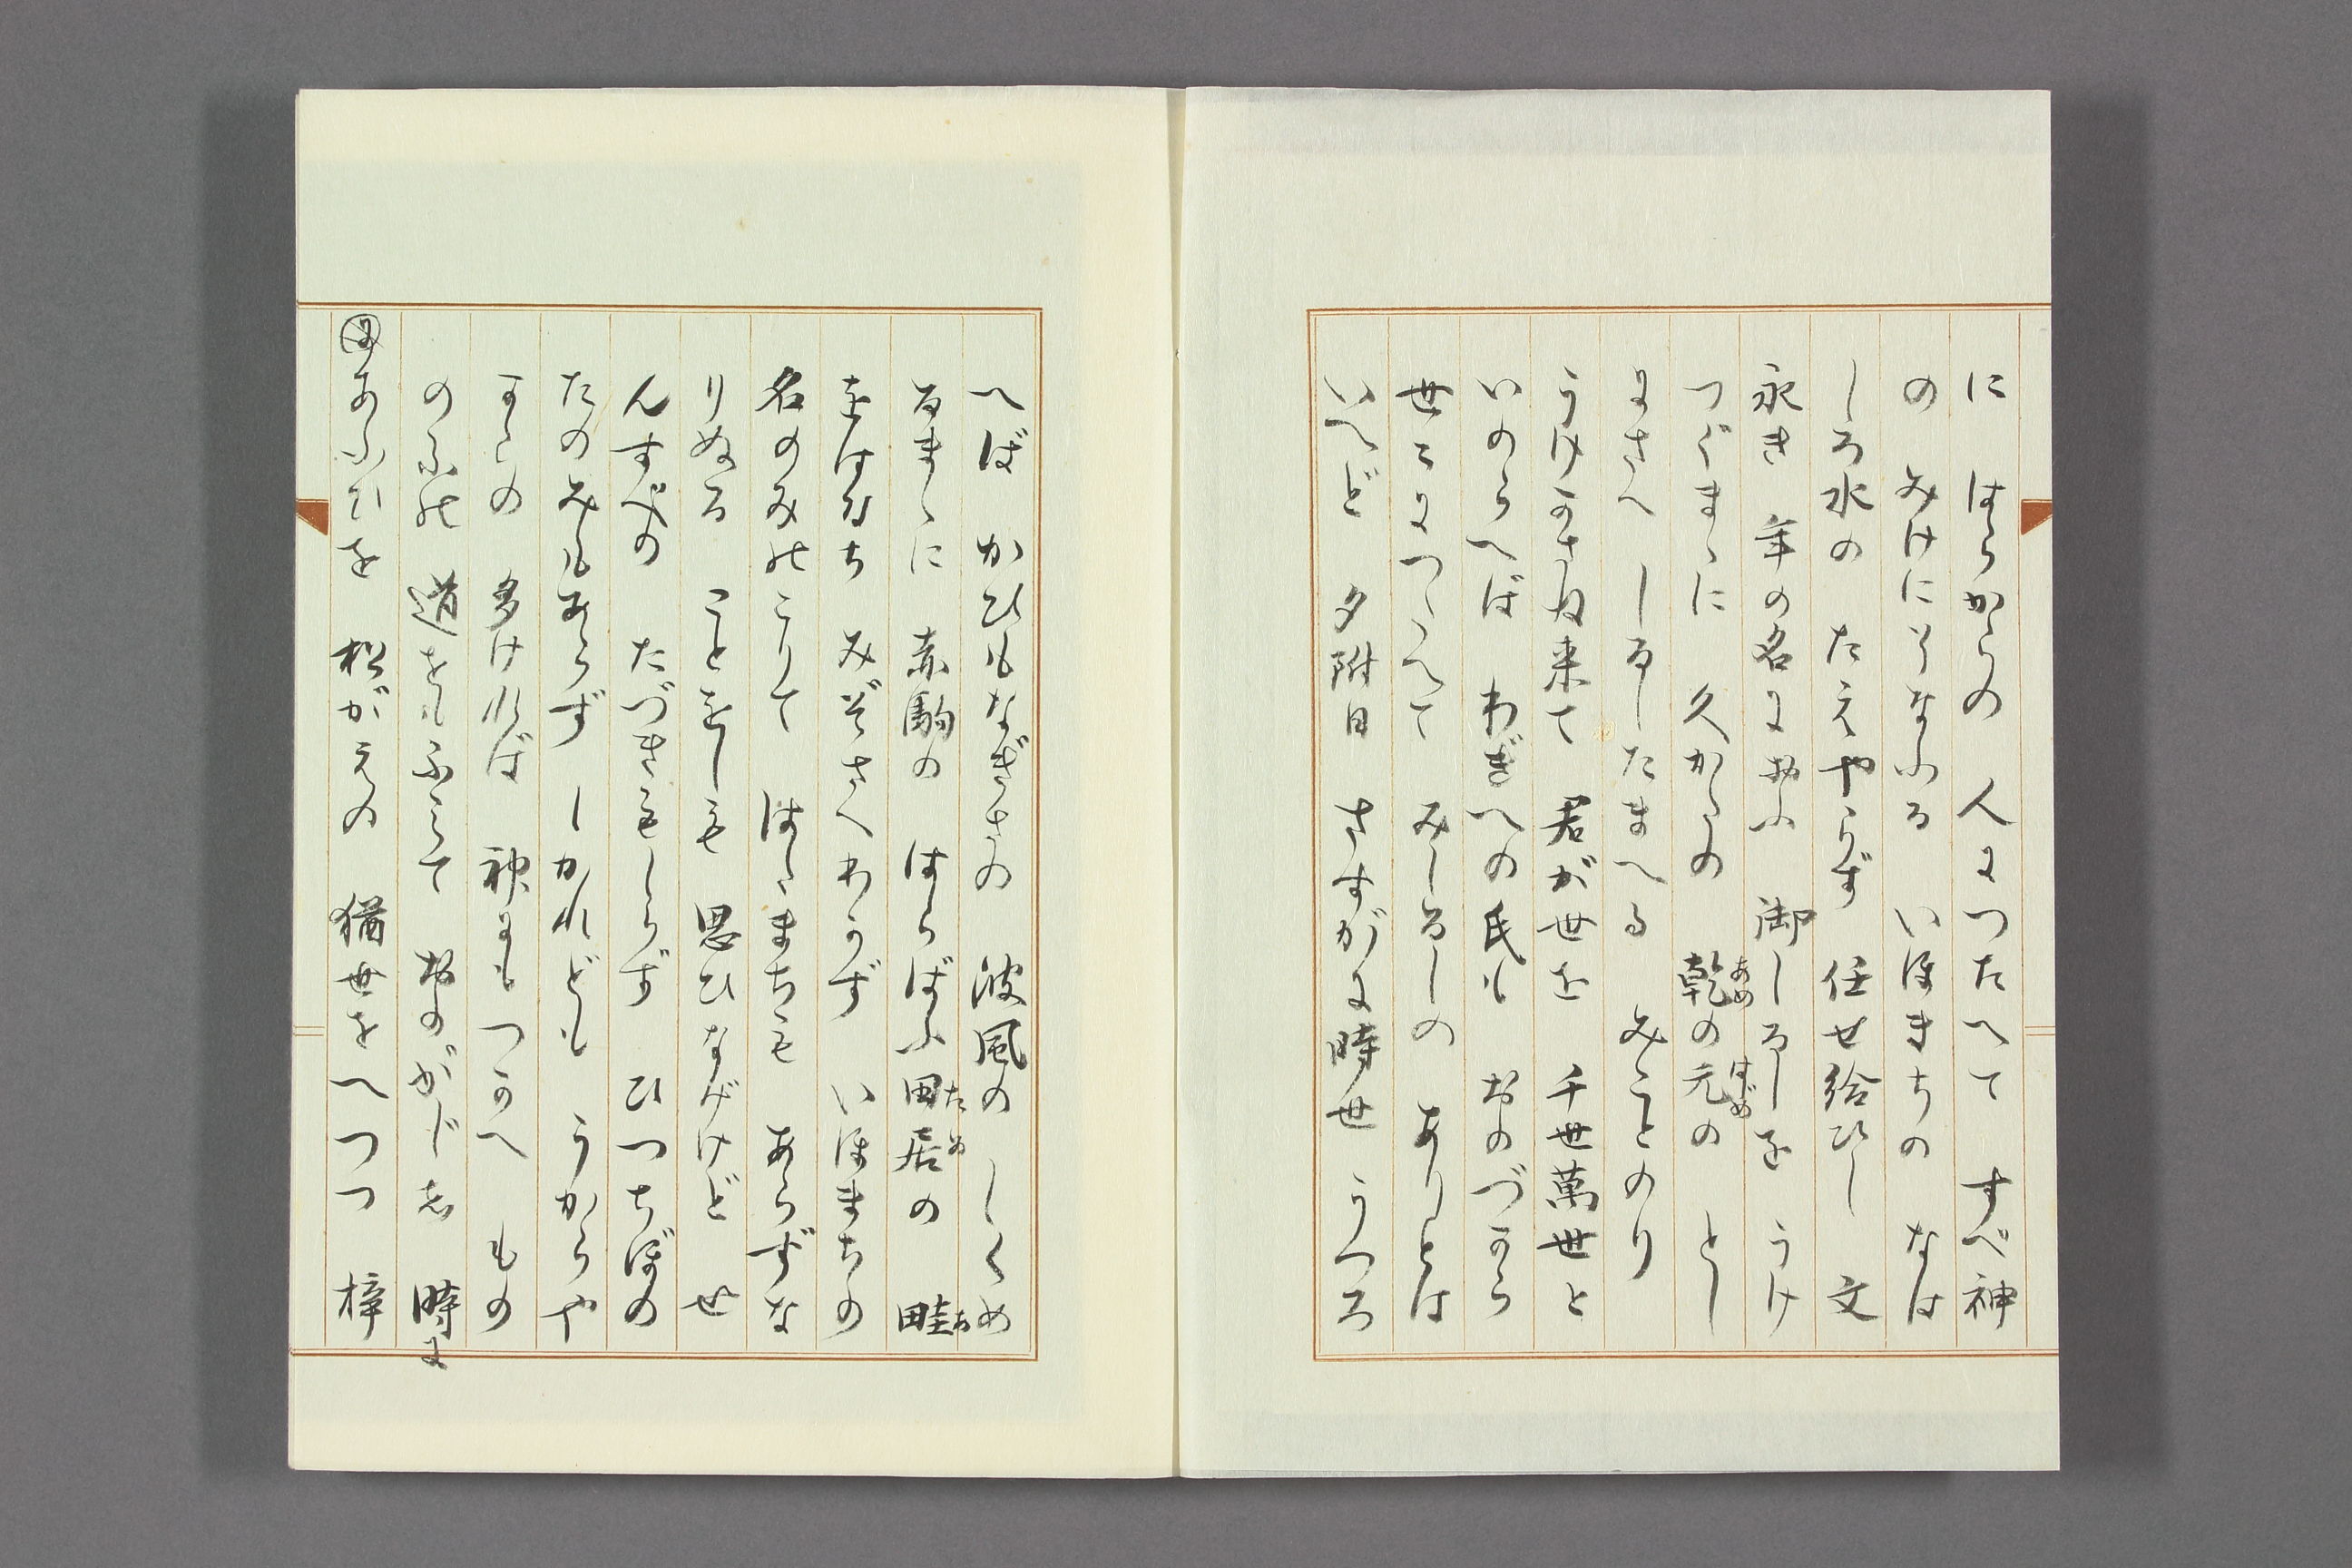 に はらからの 人につたへて すべ神
の みけにそなふる いほまちの なは
しろ水の たえやらず 任せ給ひし 文
永き 年の名におふ 御しるしを うけ
つぐまゝに 久かたの 乾の元の とし
あめ はじめ
にさへ しるしたまへる みことのり
うけかさね来て 君が世を 千世萬世と
いのらへば わぎへの氏も おのづから
世々につたへて みしるしの ありとは
いへど 夕附日 さすがに時世 うつろ
へば かひもなぎさの 波風の しくめ
るまゝに 赤駒の はらばふ田居の 畦
たゐ あ
をはなち みぞさへわかず いほまちの
名のみのこりて はたまちも あらずな
りぬる ことをしも 思ひなげけど せ
んすべの たづきもしらず ひつちぼの
たのみもあらず しかれども うからや
からの 多ければ 神にもつかへ ものゝ
のふの 道をもふみて おのがじゝ 時に
あふひを 松がえの 猶世をへつつ 梓